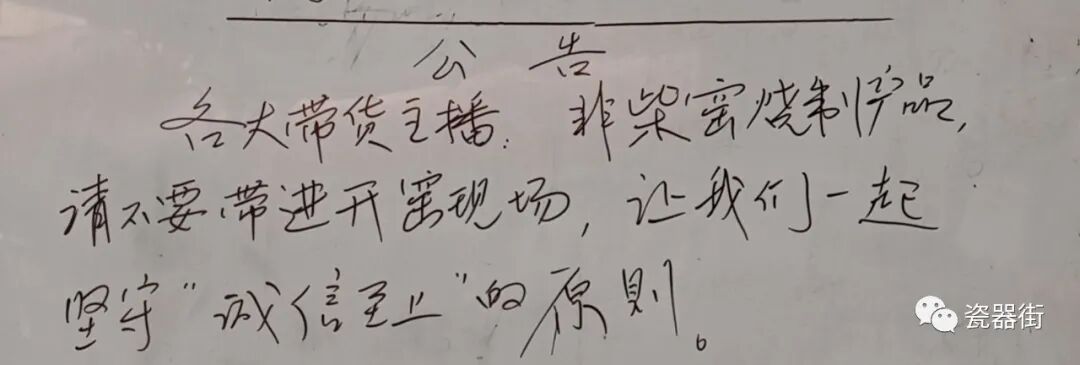 公告
各大带货主播：非柴窑烧制产品，
请不要带进开窑现场，让我们一起
坚守“诚信至上”的原则。
瓷器街